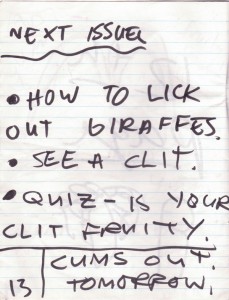 NEXT ISSUE
• HOW TO LICK
OUT GIRAFFES.
• SEE A CLIT.
• QUIZ - IS YOUR
CLIT FRUITY.
CUMS OUT.
13 TOMORROW.